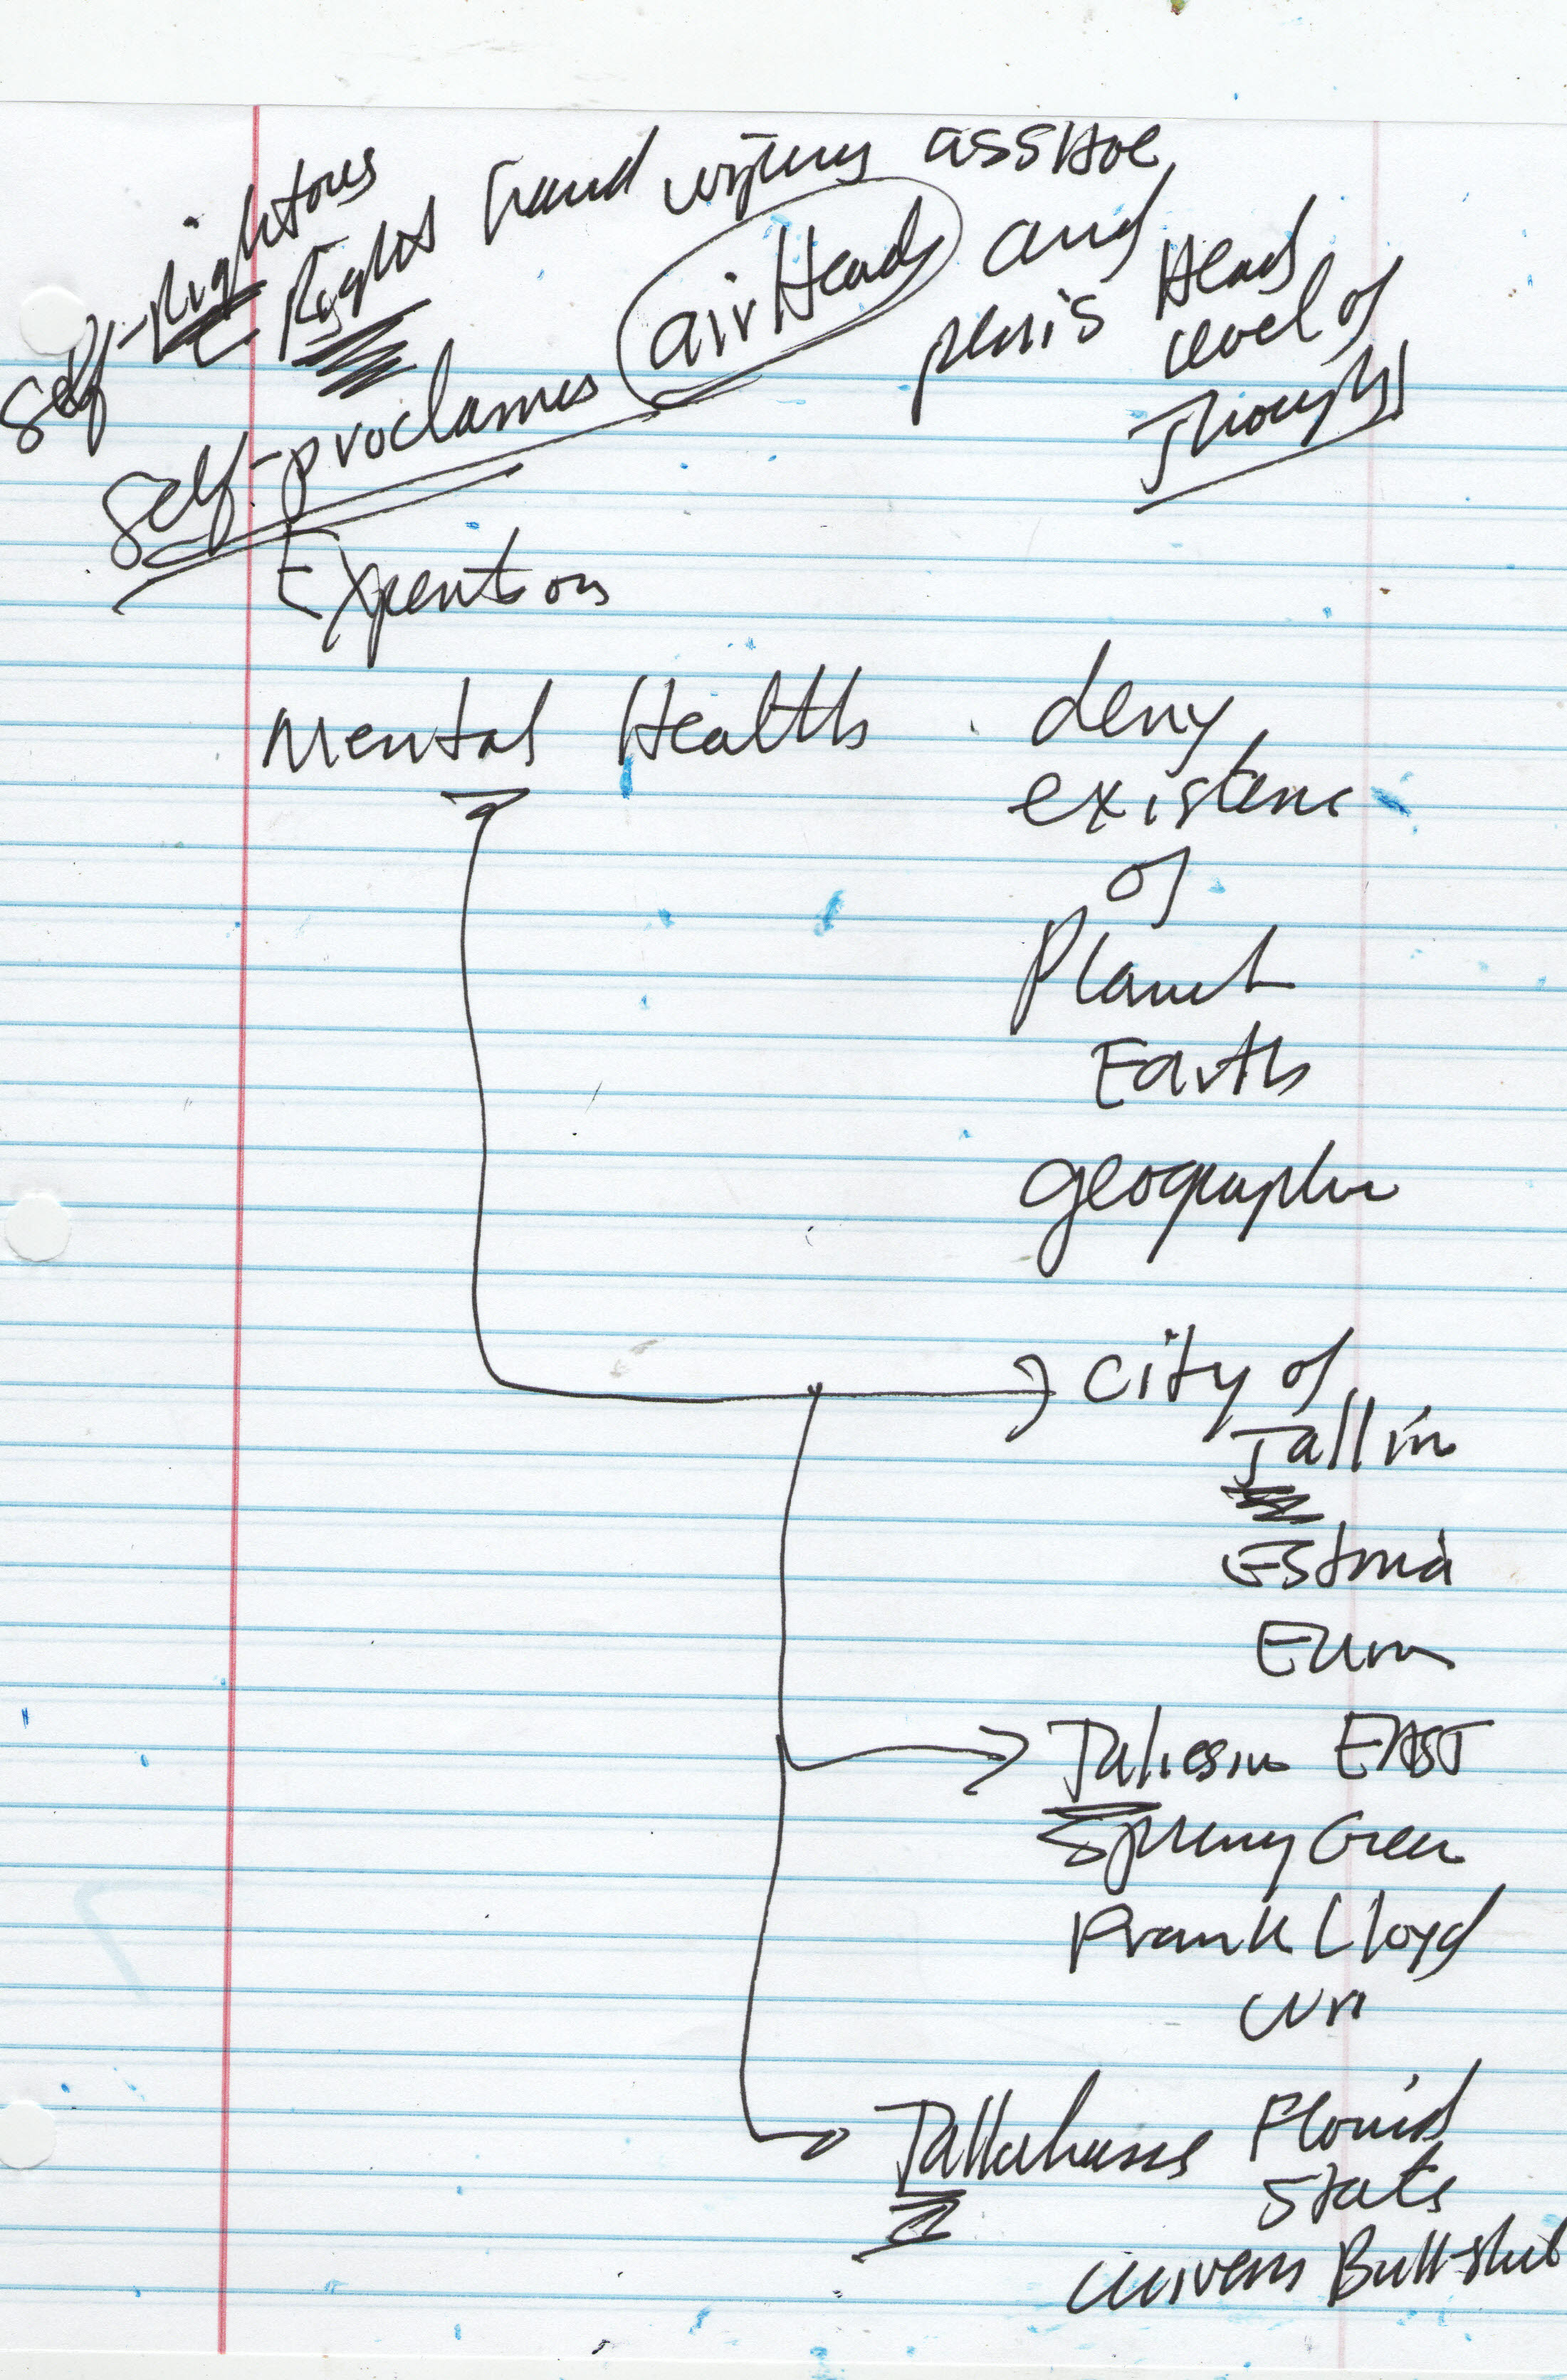 Self-Rightous
Right hand wiping assHole
self-proclames airHeads and
penis Head
level of
Thought
Experts on
Mental Health deny
existenc
of
Planet
Earth
geographic
City of
Tallin
Estonia
Euro
Taliesin EAST
Spring Green
Frank Lloyd
Wri
Tallahasse Florid
State
Univers Bull-shit